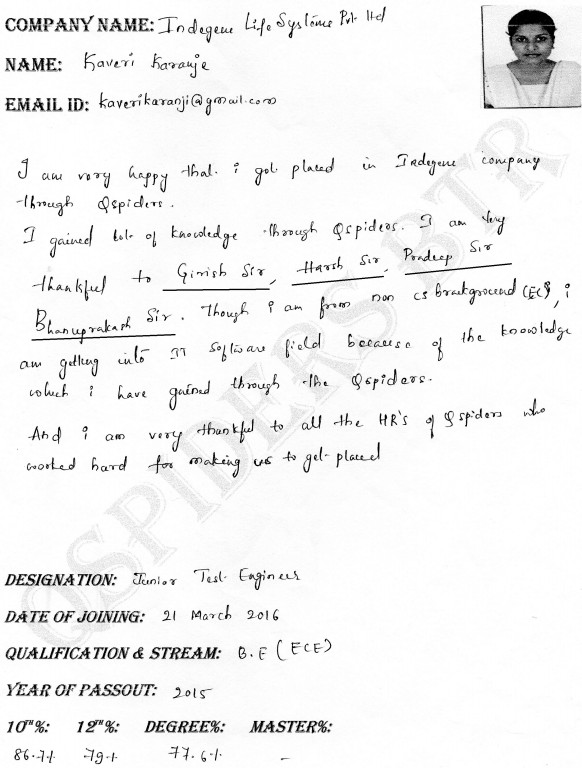 COMPANY NAME: Indegene Life Systems Pvt ltd
NAME: Kaveri Karanje
EMAIL ID: kaverikaranji@gmail.com
I am very happy that i got placed in Indegene company
through Qspiders.
I gained lot of knowledge through Qspiders. I am very
thankful to Girish Sir, Harsh Sir, Pradeep Sir
Bhanuprakash Sir. Though i am from non cs brackground (EC), i
am getting into IT software field because of the knowledge
which i have gained through the Qspiders.
And i am very thankful to all the HR's of Qspiders who
worked hard for making us to get placed
QSPIDERS BTR
DESIGNATION: Junior Test Engineer
DATE OF JOINING: 21 March 2016
QUALIFICATION & STREAM: B.E (ECE)
YEAR OF PASSOUT: 2015
10TH%: 12TH%: DEGREE%: MASTER%:
86.7% 79% 77.6% -